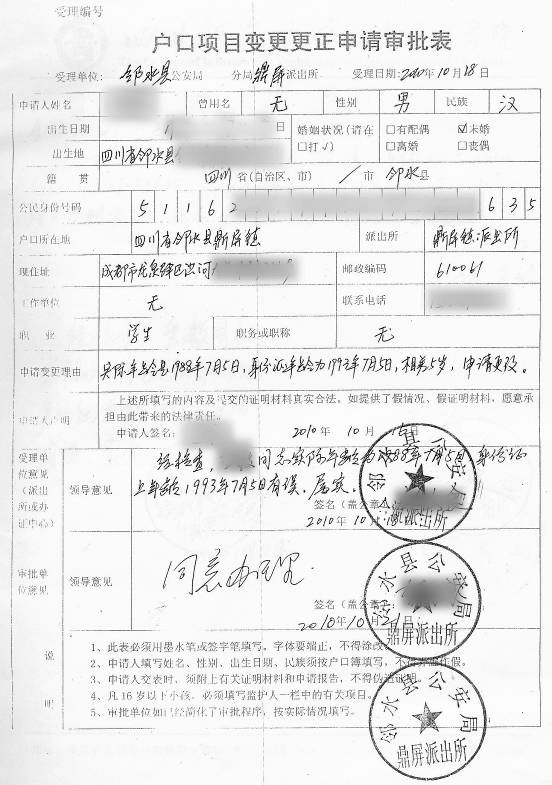 受理编号
户口项目变更更正申请审批表
受理单位：邻水县公安局 分局鼎屏派出所 受理日期2010年10月18日
申请人姓名 曾用名 无 性别 男 民族 汉
出生日期 日 婚姻状况（请在□打√） □有配偶 ☑未婚 □离婚 □丧偶
出生地 四川省邻水县
籍贯 四川省（自治区、市） / 市 邻水县
公民身份号码 5 1 1 6 2 6 3 5
户口所在地 四川省邻水县鼎屏镇 派出所 鼎屏镇派出所
现住址 成都市龙泉驿区洪河 邮政编码 610061
工作单位 无 联系电话
职业 学生 职务或职称 无
申请变更理由 实际年龄是1988年7月5日，身份证年龄为1993年7月5日，相差5岁，申请更改。
申请人声明 上述所填写的内容及提交的证明材料真实合法。如提供了假情况、假证明材料，愿意承担由此带来的法律责任。
申请人签名： 2010年10月 日
受理单位意见（派出所或办证中心） 领导意见 经检查， 同志实际年龄为1988年7月5日，身份证
上年龄1993年7月5日有误。属实。
签名（盖公章）
2010年10月
邻水县公安局
鼎屏派出所
审批单位意见 领导意见 同意办理
签名（盖公章）
2010年10月21日
邻水县公安局
鼎屏派出所
说明
1、此表必须用墨水笔或签字笔填写，字体要端正，不得涂改。
2、申请人填写姓名、性别、出生日期、民族须按户口簿填写，不得弄虚作假。
3、申请人交表时、须附上有关证明材料和申请报告，不得伪造证明。
4、凡16岁以下小孩，必须填写监护人一栏中的有关项目。
5、审批单位如已经简化了审批程序，按实际情况填写。
邻水县公安局
鼎屏派出所